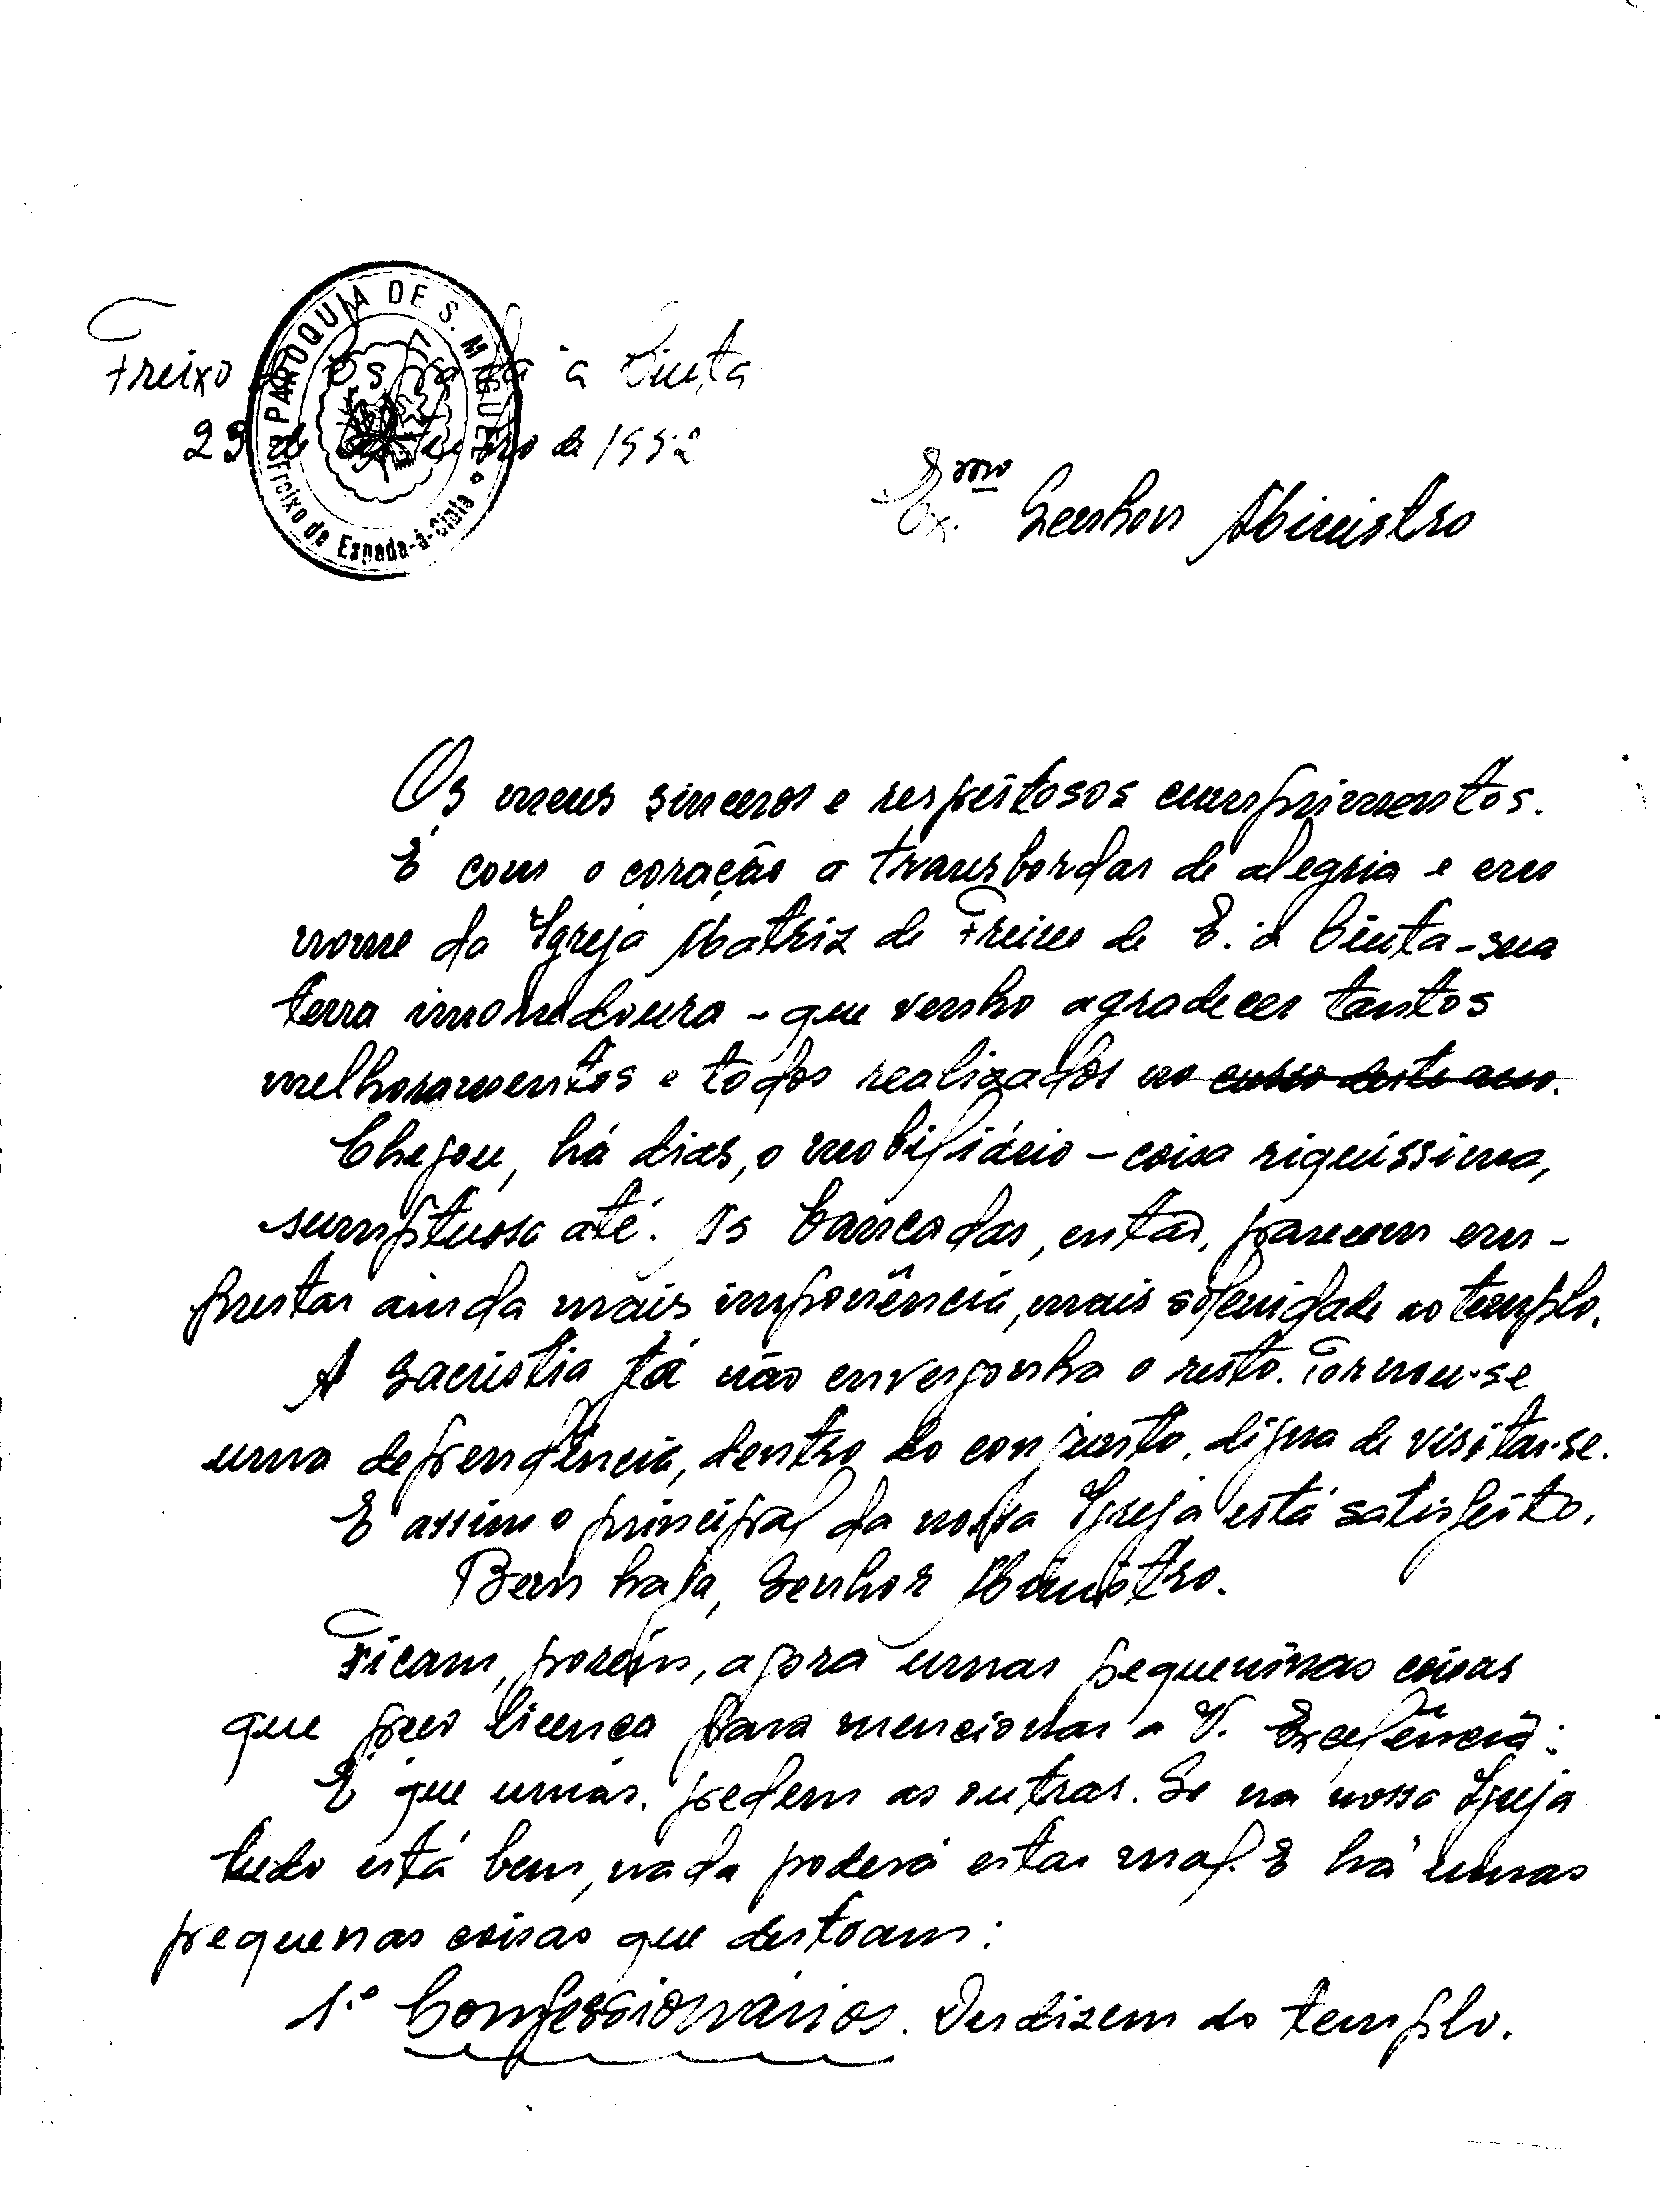 PAROQUIA DE S. MIGUEL
Freixo de Espada-à-Cinta
Freixo de Espada à Cinta
29 de de 1952
Exmo Senhor Ministro
Os meus sinceros e respeitosos cumprimentos.
É com o coração a transbordar de alegria e em
nome da Igreja Matriz de Freixo de E. à Cinta - sua
terra - que venho agradecer tantos
melhoramentos e todos realizados no curso deste ano.
Chegou, há dias, o mobiliário - coisa riquíssima,
sumptuosa até. As bancadas, então, parecem em-
prestar ainda mais imponência, mais solenidade ao templo.
A Sacristia já não envergonha o resto. Tornou-se
uma dependência, dentro do conjunto, digna de visitar-se.
E assim o principal da nossa Igreja está satisfeito.
Bem haja, Senhor Ministro.
Ficam, porém, agora umas pequeninas coisas
que peço licença para mencionar a V. Excelência:
É que umas pedem as outras. Se na nossa Igreja
tudo está bem, nada poderá estar mal. E há umas
pequenas coisas que destoam:
1.º Confessionários. Desdizem do templo.